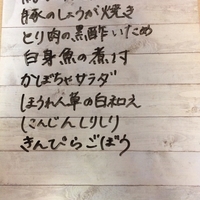 豚のしょうが焼き
とり肉の黒酢いため
白身魚の煮付
かぼちゃサラダ
ほうれん草の白和え
にんじんしりしり
きんぴらごぼう